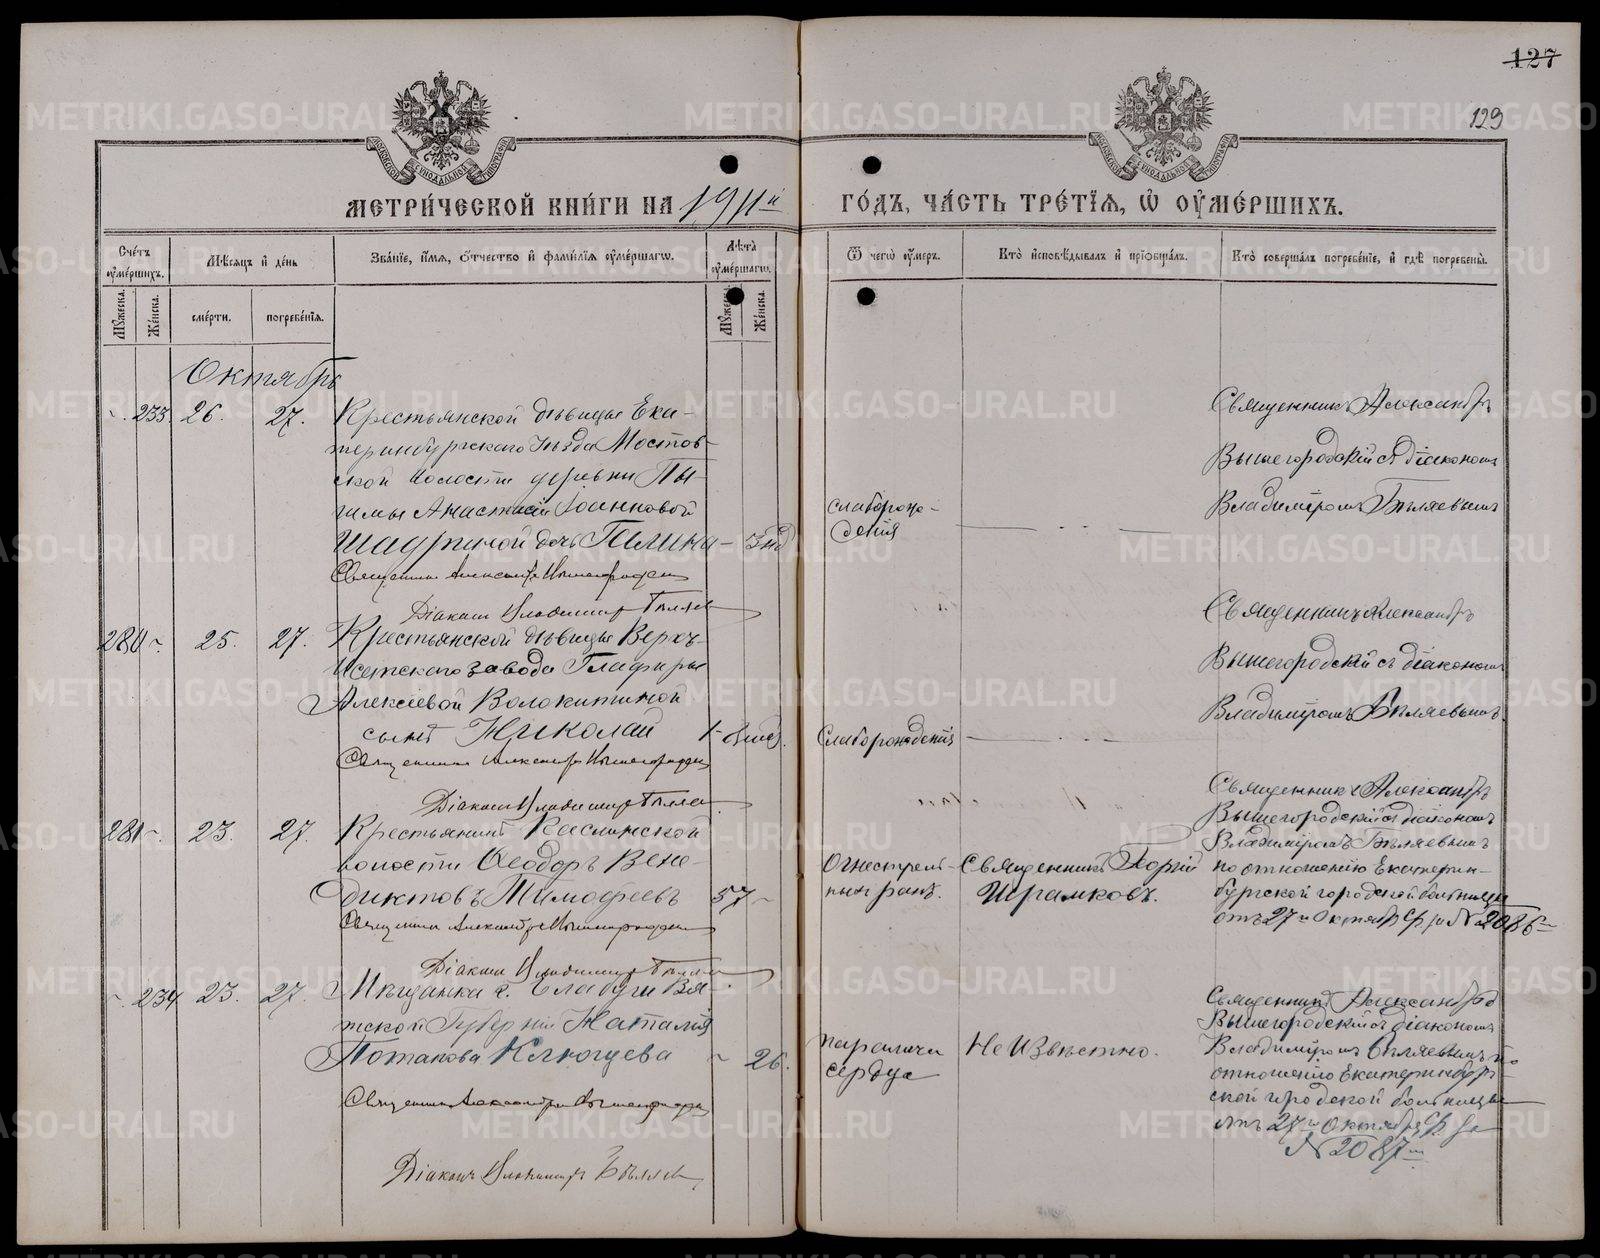 127
129
МОСКОВСКОЙ СИНОДАЛЬНОЙ ТИПОГРАФІИ
МОСКОВСКОЙ СИНОДАЛЬНОЙ ТИПОГРАФІИ
МЕТРИ́ЧЕСКОЙ КНИ́ГИ НА 1911й ГО́ДЪ, ЧА́СТЬ ТРЕ́ТІѦ, Ѡ ОУМЕ́РШИХЪ.
Сче́тъ оуме́ршихъ.
Мѣ́сяцъ и де́нь
Зва́ніе, и́мя, о́тчество и фами́лія оуме́ршагѡ.
Лѣта̀ оуме́ршагѡ.
Ѿ чегѡ̀ оу́меръ.
Кто̀ исповѣ́дывалъ и пріобща́лъ.
Кто̀ соверша́лъ погребе́ніе, и гдѣ̀ погребены̀.
Му́жеска.
Же́нска.
сме́рти.
погребе́нія.
Му́жеска.
Же́нска.
Октябрь
233. 26. 27.
Крестьянской дѣвицы Ека-
теринбургскаго Уѣзда Мостов-
ской волости деревни Пы-
шмы Анастасіи Іоанновой
Шадриной дочь Галина – 3 нд
Священникъ Александръ Вышегородскій
Діаконъ Владимиръ Бѣляевъ
слаборож-
денія
Священникъ Александръ
Вышегородскій съ діакономъ
Владиміромъ Бѣляевымъ
280 25. 27.
Крестьянской дѣвицы Верхъ-
Исетскаго завода Глафиры
Алексіевой Волокитиной
сынъ Николай
Священникъ Александръ Вышегородскій
Діаконъ Владимиръ Бѣляевъ
Слаборожденія
Священникъ Александръ
Вышегородскій съ діакономъ
Владиміромъ Бѣляевымъ.
281 23. 27.
Крестьянинъ Каслинской
волости Ѳеодоръ Вене-
диктовъ Тимофеевъ 57
Священникъ Александръ Вышегородскій
Діаконъ Владимиръ Бѣляевъ
Огнестрѣль-
ныхъ ранъ.
Священникъ Георгій
Шрамковъ.
Священникъ Александръ
Вышегородскій съ діакономъ
Владиміромъ Бѣляевымъ
по отношенію Екатерин-
бургской городской больницы
отъ 27го Октября за № 2086
234 23. 27.
Мѣщанка г. Елабуги Вя-
тской Губерніи Наталія
Потапова Ключцева 26.
Священникъ Александръ Вышегородскій
Діаконъ Владимиръ Бѣляевъ
параличъ
сердца
Не извѣстно.
Священникъ Александръ
Вышегородскій съ діакономъ
Владиміромъ Бѣляевымъ по
отношенію Екатеринбург-
ской городской больницы
отъ 27го Октября за
№ 2087
METRIKI.GASO-URAL.RU